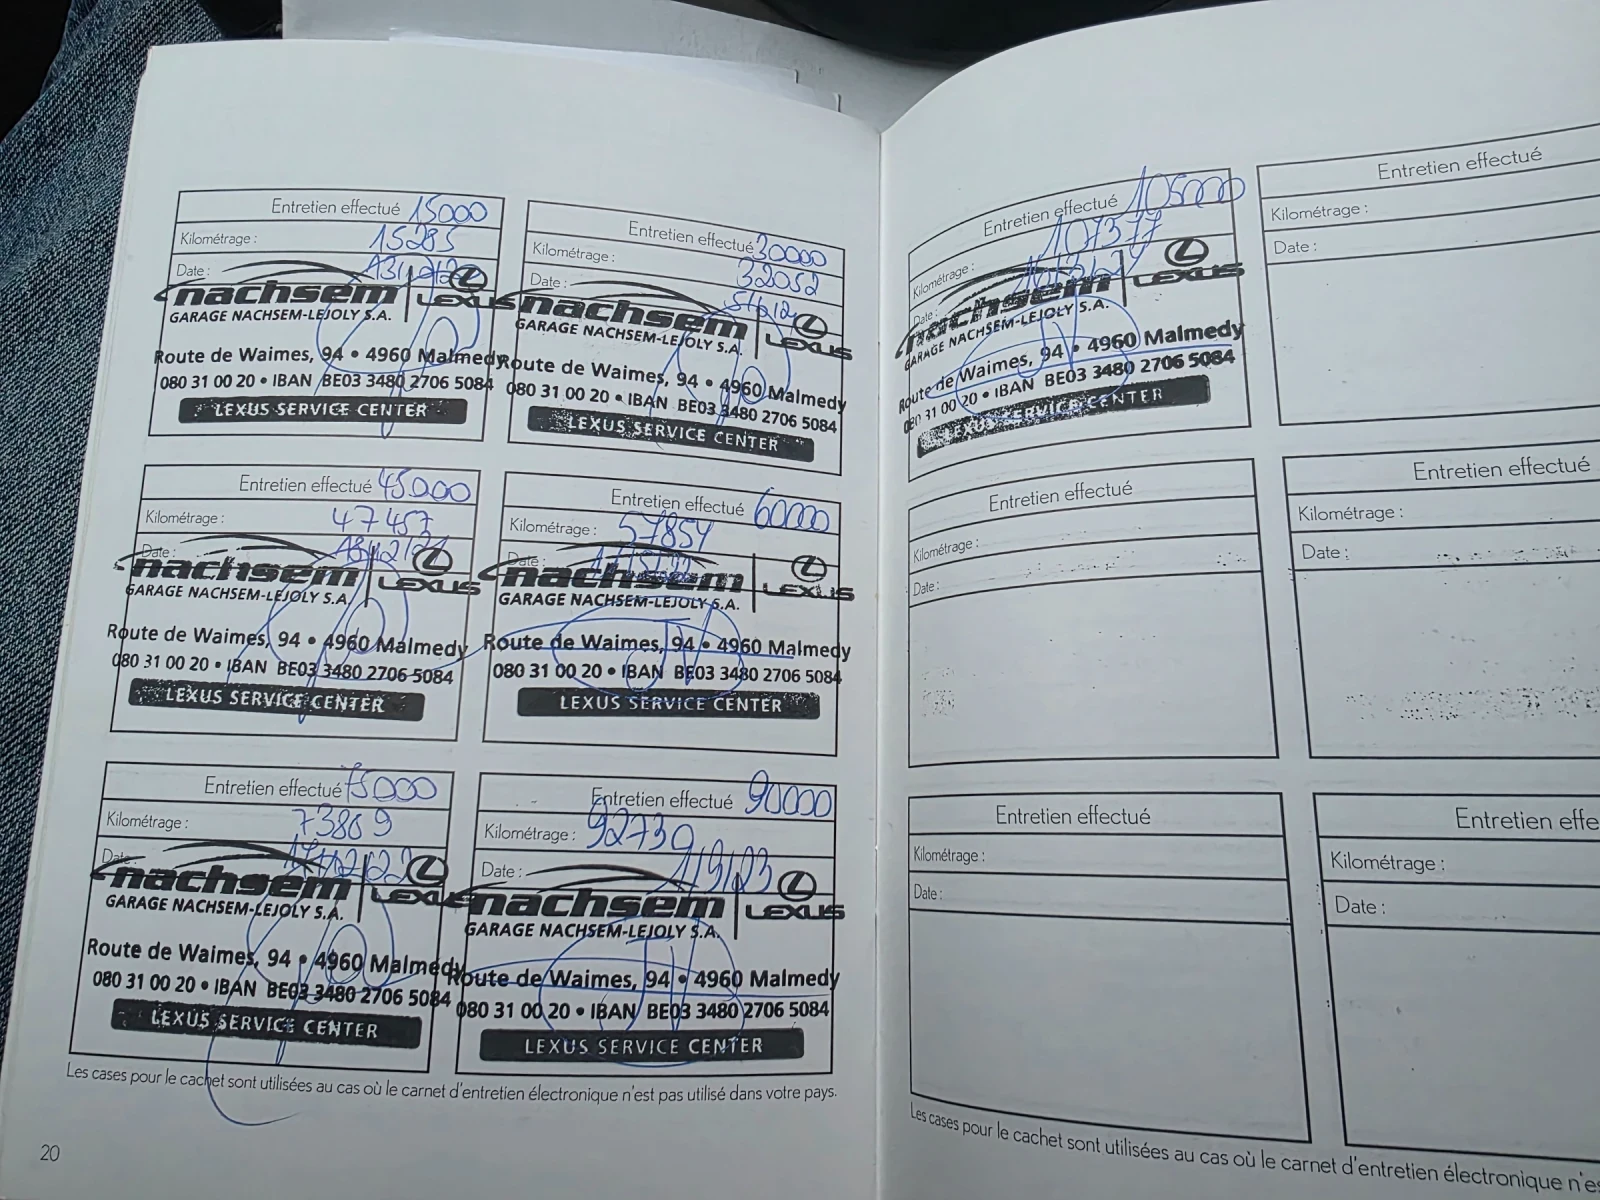 Entretien effectué 15000
Kilométrage : 15285
Date :
nachsem LEXUS
GARAGE NACHSEM-LEJOLY S.A.
Route de Waimes, 94 • 4960 Malmedy
080 31 00 20 • IBAN BE03 3480 2706 5084
LEXUS SERVICE CENTER
Entretien effectué 30000
Kilométrage : 32052
Date :
nachsem LEXUS
GARAGE NACHSEM-LEJOLY S.A.
Route de Waimes, 94 • 4960 Malmedy
080 31 00 20 • IBAN BE03 3480 2706 5084
LEXUS SERVICE CENTER
Entretien effectué 45000
Kilométrage : 47457
Date :
nachsem LEXUS
GARAGE NACHSEM-LEJOLY S.A.
Route de Waimes, 94 • 4960 Malmedy
080 31 00 20 • IBAN BE03 3480 2706 5084
LEXUS SERVICE CENTER
Entretien effectué 60000
Kilométrage : 57854
Date :
nachsem LEXUS
GARAGE NACHSEM-LEJOLY S.A.
Route de Waimes, 94 • 4960 Malmedy
080 31 00 20 • IBAN BE03 3480 2706 5084
LEXUS SERVICE CENTER
Entretien effectué 75000
Kilométrage : 73869
Date :
nachsem LEXUS
GARAGE NACHSEM-LEJOLY S.A.
Route de Waimes, 94 • 4960 Malmedy
080 31 00 20 • IBAN BE03 3480 2706 5084
LEXUS SERVICE CENTER
Entretien effectué 90000
Kilométrage : 92739
Date : 1/9/23
nachsem LEXUS
GARAGE NACHSEM-LEJOLY S.A.
Route de Waimes, 94 • 4960 Malmedy
080 31 00 20 • IBAN BE03 3480 2706 5084
LEXUS SERVICE CENTER
Les cases pour le cachet sont utilisées au cas où le carnet d'entretien électronique n'est pas utilisé dans votre pays.
20
Entretien effectué 105000
Kilométrage : 107377
Date :
nachsem LEXUS
GARAGE NACHSEM-LEJOLY S.A.
Route de Waimes, 94 • 4960 Malmedy
080 31 00 20 • IBAN BE03 3480 2706 5084
LEXUS SERVICE CENTER
Entretien effectué
Kilométrage :
Date :
Entretien effectué
Kilométrage :
Date :
Entretien effectué
Kilométrage :
Date :
Entretien effectué
Kilométrage :
Date :
Entretien effe
Kilométrage :
Date :
Les cases pour le cachet sont utilisées au cas où le carnet d'entretien électronique n'es